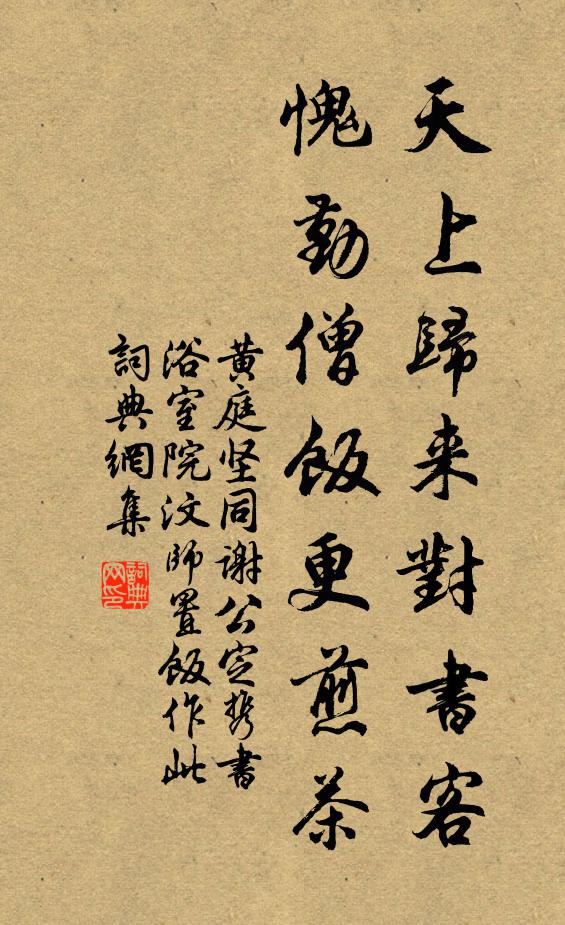 天上歸来對書客
愧勤僧飯更煎茶
黄庭坚同谢公定携書
浴室院汶師置飯作此
詞典網集
詞典网印